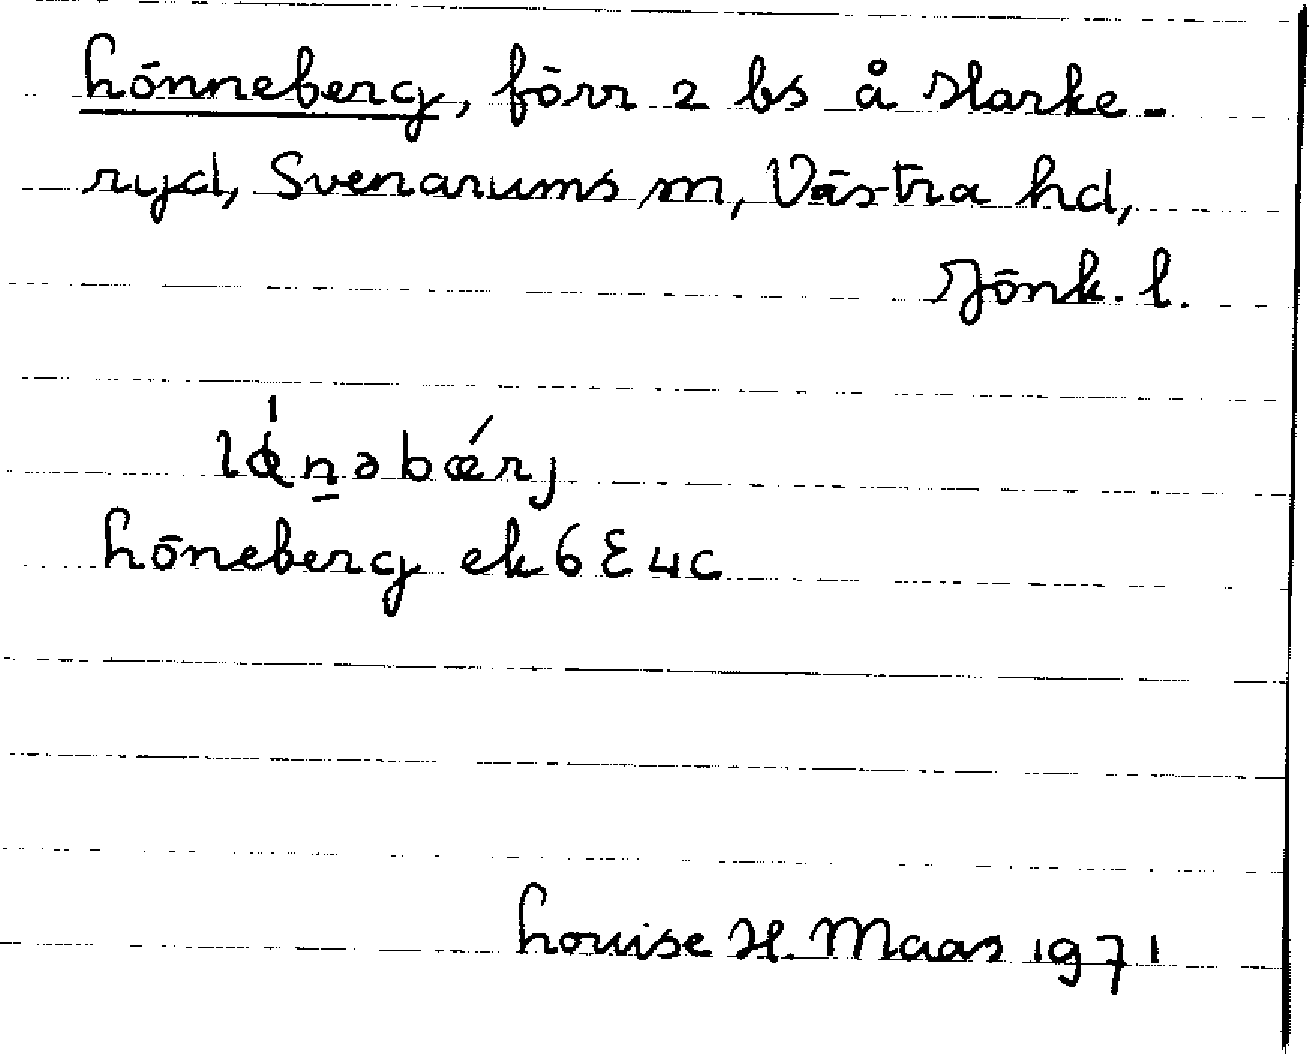 Lönneberg, förr 2 bs å Harke-
ryd, Svenarums sn, Västra hd,
Jönk. l.
lǿn̠əbǽrj
Löneberg ek 6E4c
Louise H. Maas 1971